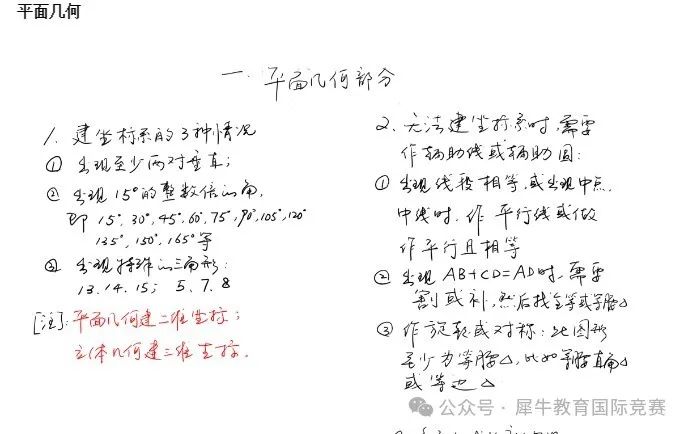 平面几何
一. 平面几何部分
1. 建坐标系的3种情况
① 出现至少两对垂直；
② 出现15°的整数倍的角,
即 15°, 30°, 45°, 60°, 75°, 90°, 105°, 120°
135°, 150°, 165° 等
③ 出现特殊的三角形：
13. 14. 15； 5、7、8
[注]: 平面几何建二维坐标；
立体几何建三维坐标.
2. 无法建坐标系时, 需要
作辅助线或辅助圆：
① 出现线段相等, 或出现中点,
中线时, 作平行线或做
作平行且相等
② 出现 AB+CD=AD时, 需要
割或补, 然后找全等或等腰△
③ 作旋转或对称：此图形
至少为等腰△, 比如等腰直角△
或等边△
公众号 · 犀牛教育国际竞赛